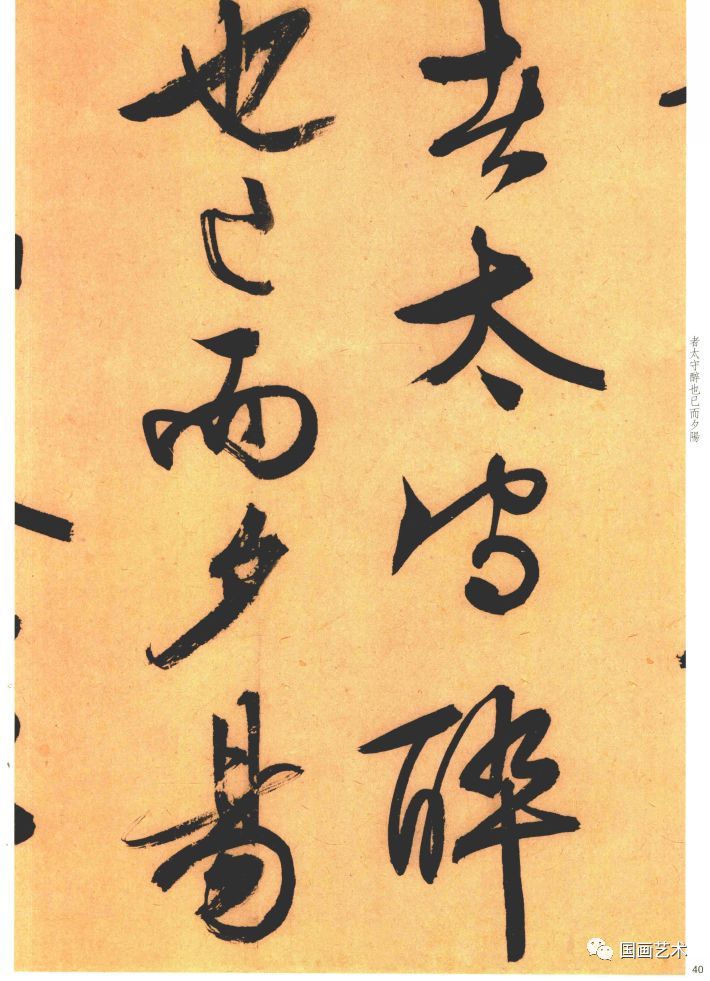 者太守醉
也已而夕昜
者太守醉也已而夕陽
国画艺术
40